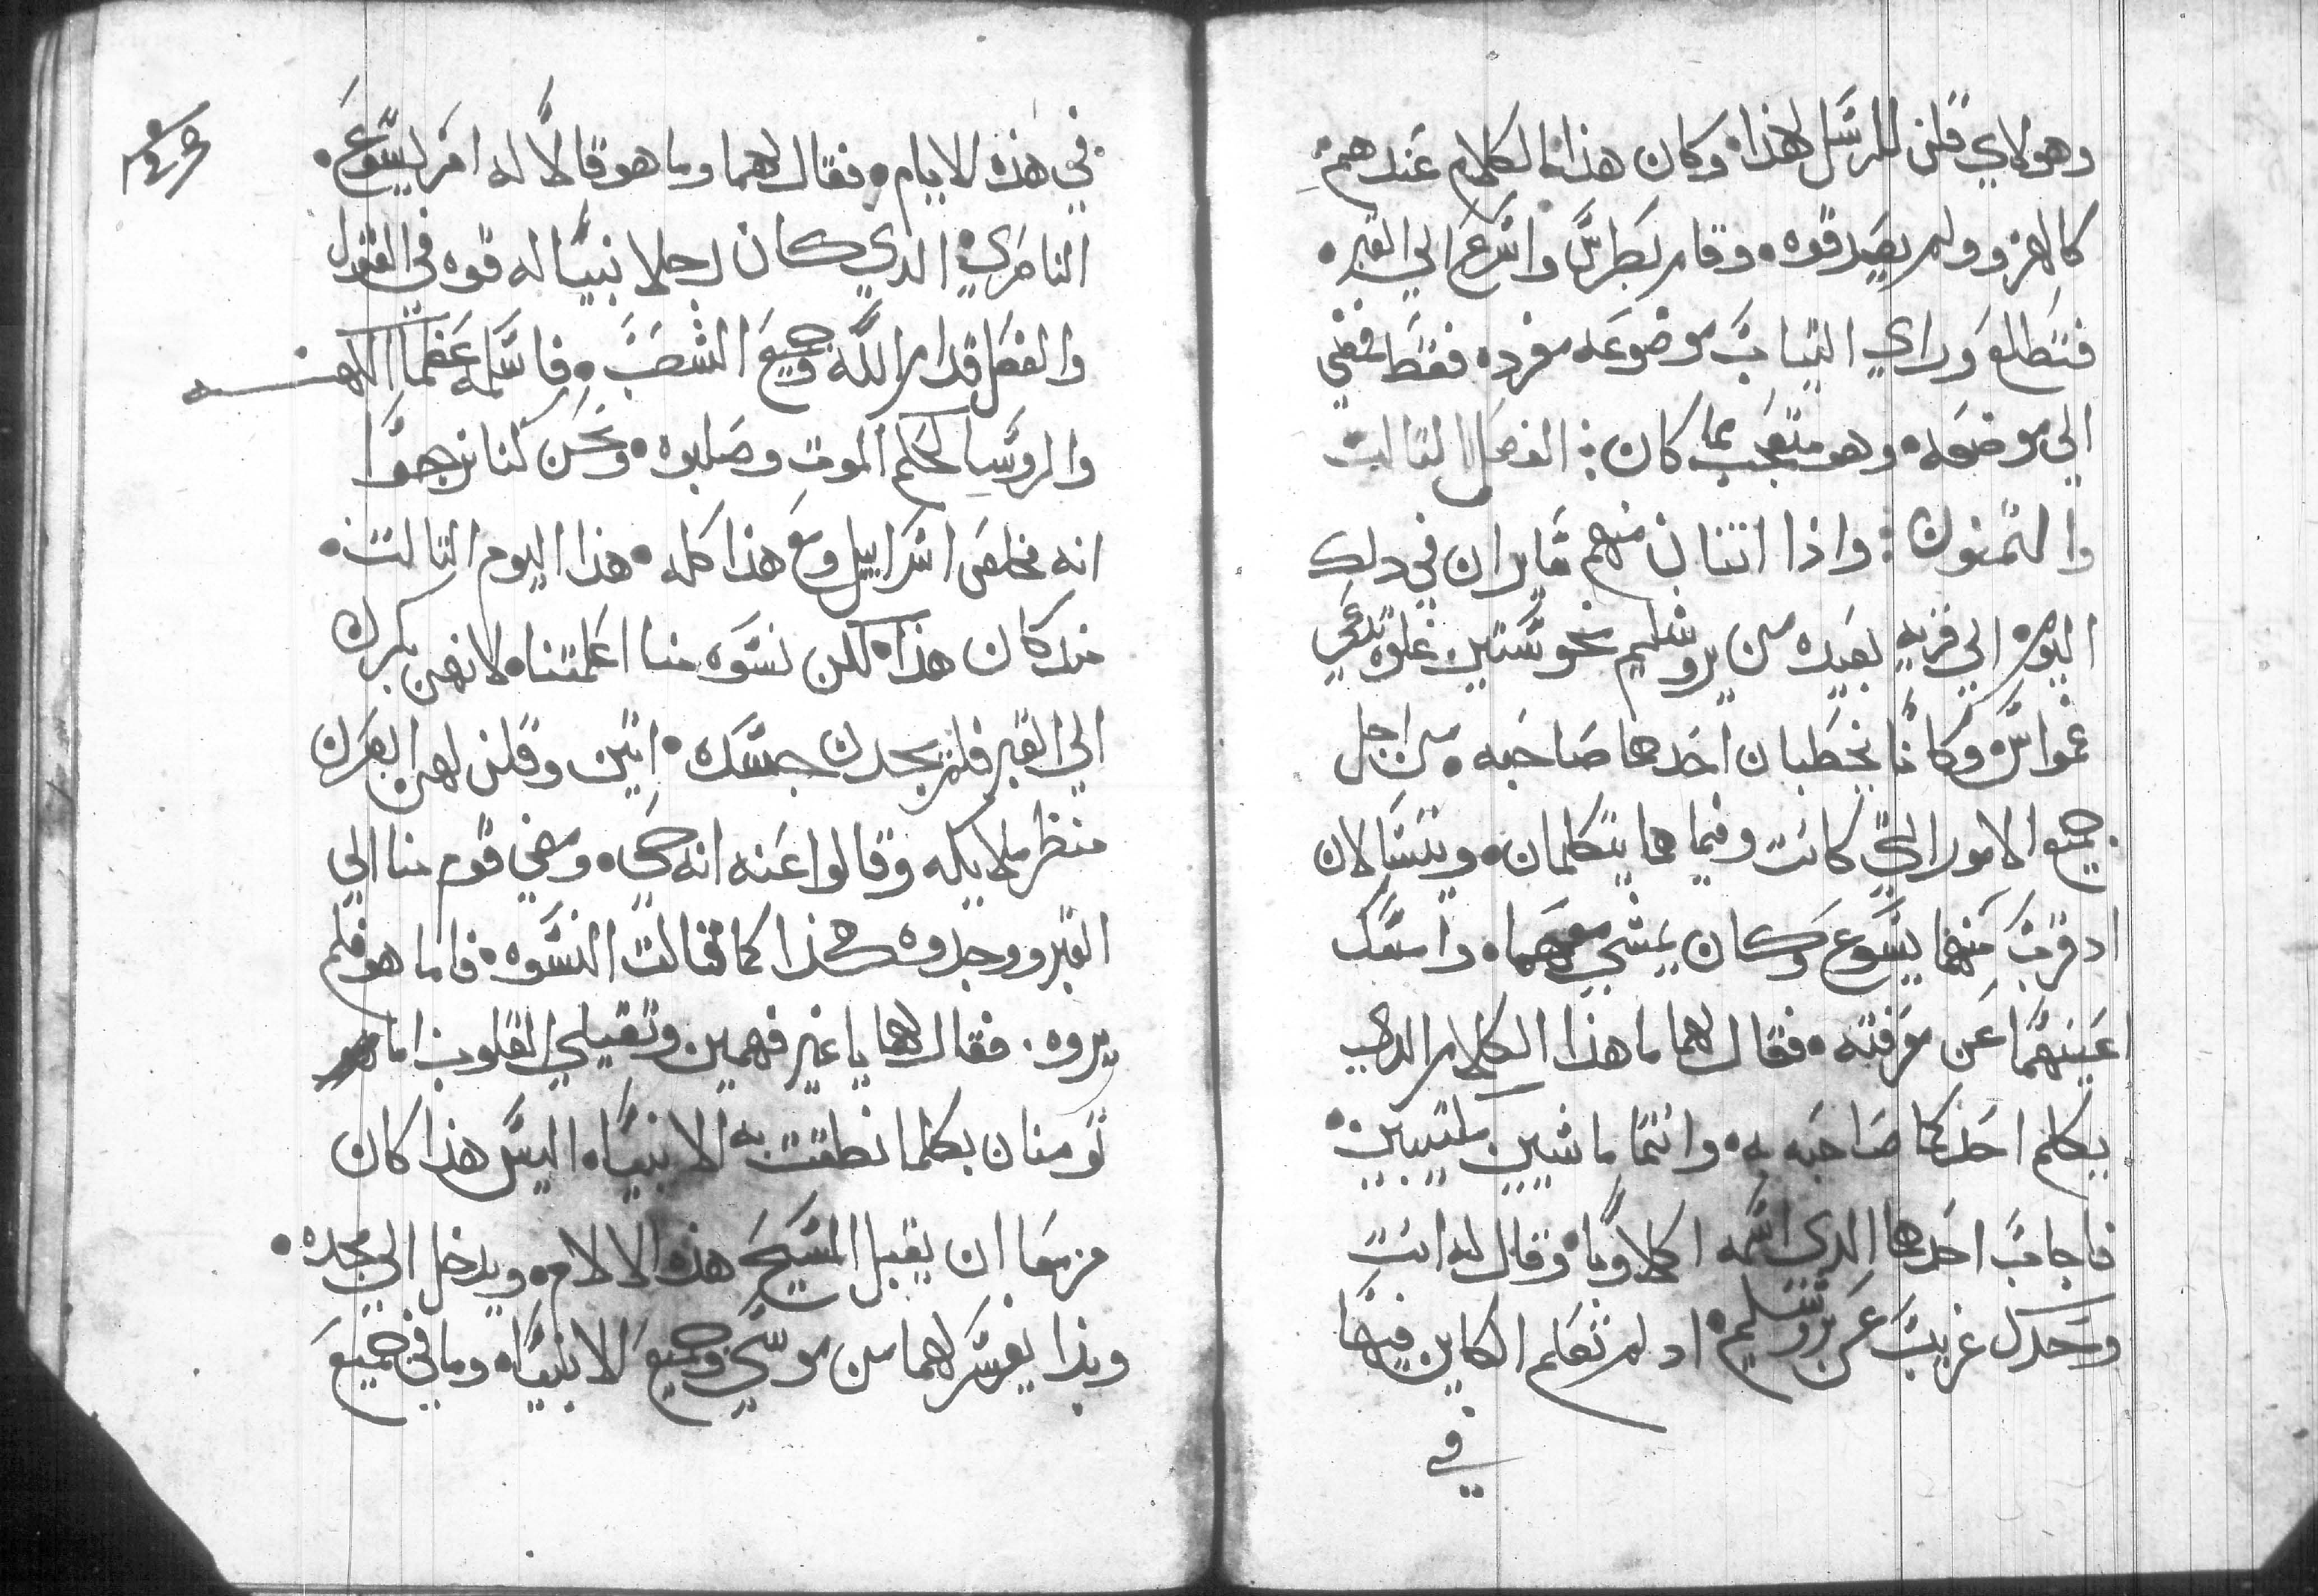 وهولاي قلن للرسل هذا وكان هذا الكلام عندهم
كالهزو ولم يصدقوه وقام بطرس واسرع الي القبر
فتطلع وراي التياب موضوعه مفرده فقط فمضي
الي موضعه وهو متعجب مما كان الفصل التالت
والتمنون واذا اتنان منهم سايران في دلك
اليوم الي قريه بعيده من يروشليم نحو ستين غلوه تدعي
عمواس وكانا يخطبان احدهما صاحبه من اجل
جميع الامور التي كانت وفيما هما يتكلمان ويتسالان
اد قرب منهما يسوع وكان يمشي معهما وامسك
اعينهما عن معرفته فقال لهما ما هذا الكلام الدي
يكلم احدكما صاحبه به وانتما ماشيين مكتيبين
فاجاب احدهما الدي اسمه اكلاوبا وقال له انت
وحدك غريب عن يروشليم اد لم تعلم الكاين فيها
في
في هذه الايام فقال لهما وما هو قالا له امر يسوع
الناصري الدي كان رجلا نبيا له قوه في القول
والفعل قدام الله وجميع الشعب فاسلمه عظما الكهنه
والروسا لحكم الموت وصلبوه ونحن كنا نرجوا
انه مخلص اسراييل ومع هذا كله هذا اليوم التالت
مند كان هذا لكن نسوه منا اعلمتنا لانهن بكرن
الي القبر فلم يجدن جسده اتين وقلن لهن ابصرن
منظر ملايكه وقالوا عنه انه حي ومضي قوم منا الي
القبر ووجدوه هكذا كما قالت النسوه فاما هو فلم
يروه فقال لهما يا غير فهمين وتقيلي القلوب اما
تومنان بكلما نطقت به الانبيا اليس هذا كان
مزمعا ان يقبل المسيح هذه الالام ويدخل الي مجده
وبدا يفسر لهما من موسي وجميع الانبيا وما في جميع